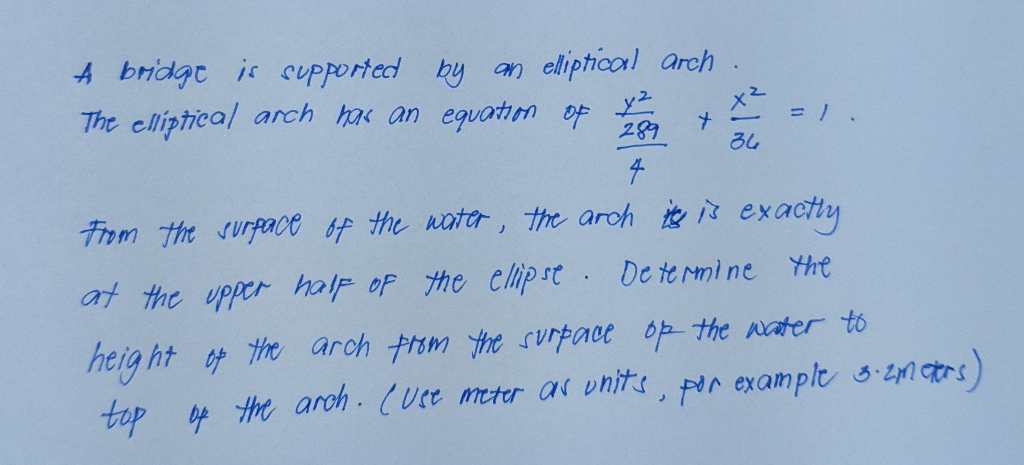 A bridge is supported by an elliptical arch.
The elliptical arch has an equation of y²/(289/4) + x²/36 = 1.
From the surface of the water, the arch is exactly
at the upper half of the ellipse. Determine the
height of the arch from the surface of the water to
top of the arch. (Use meter as units, for example 3.2meters)